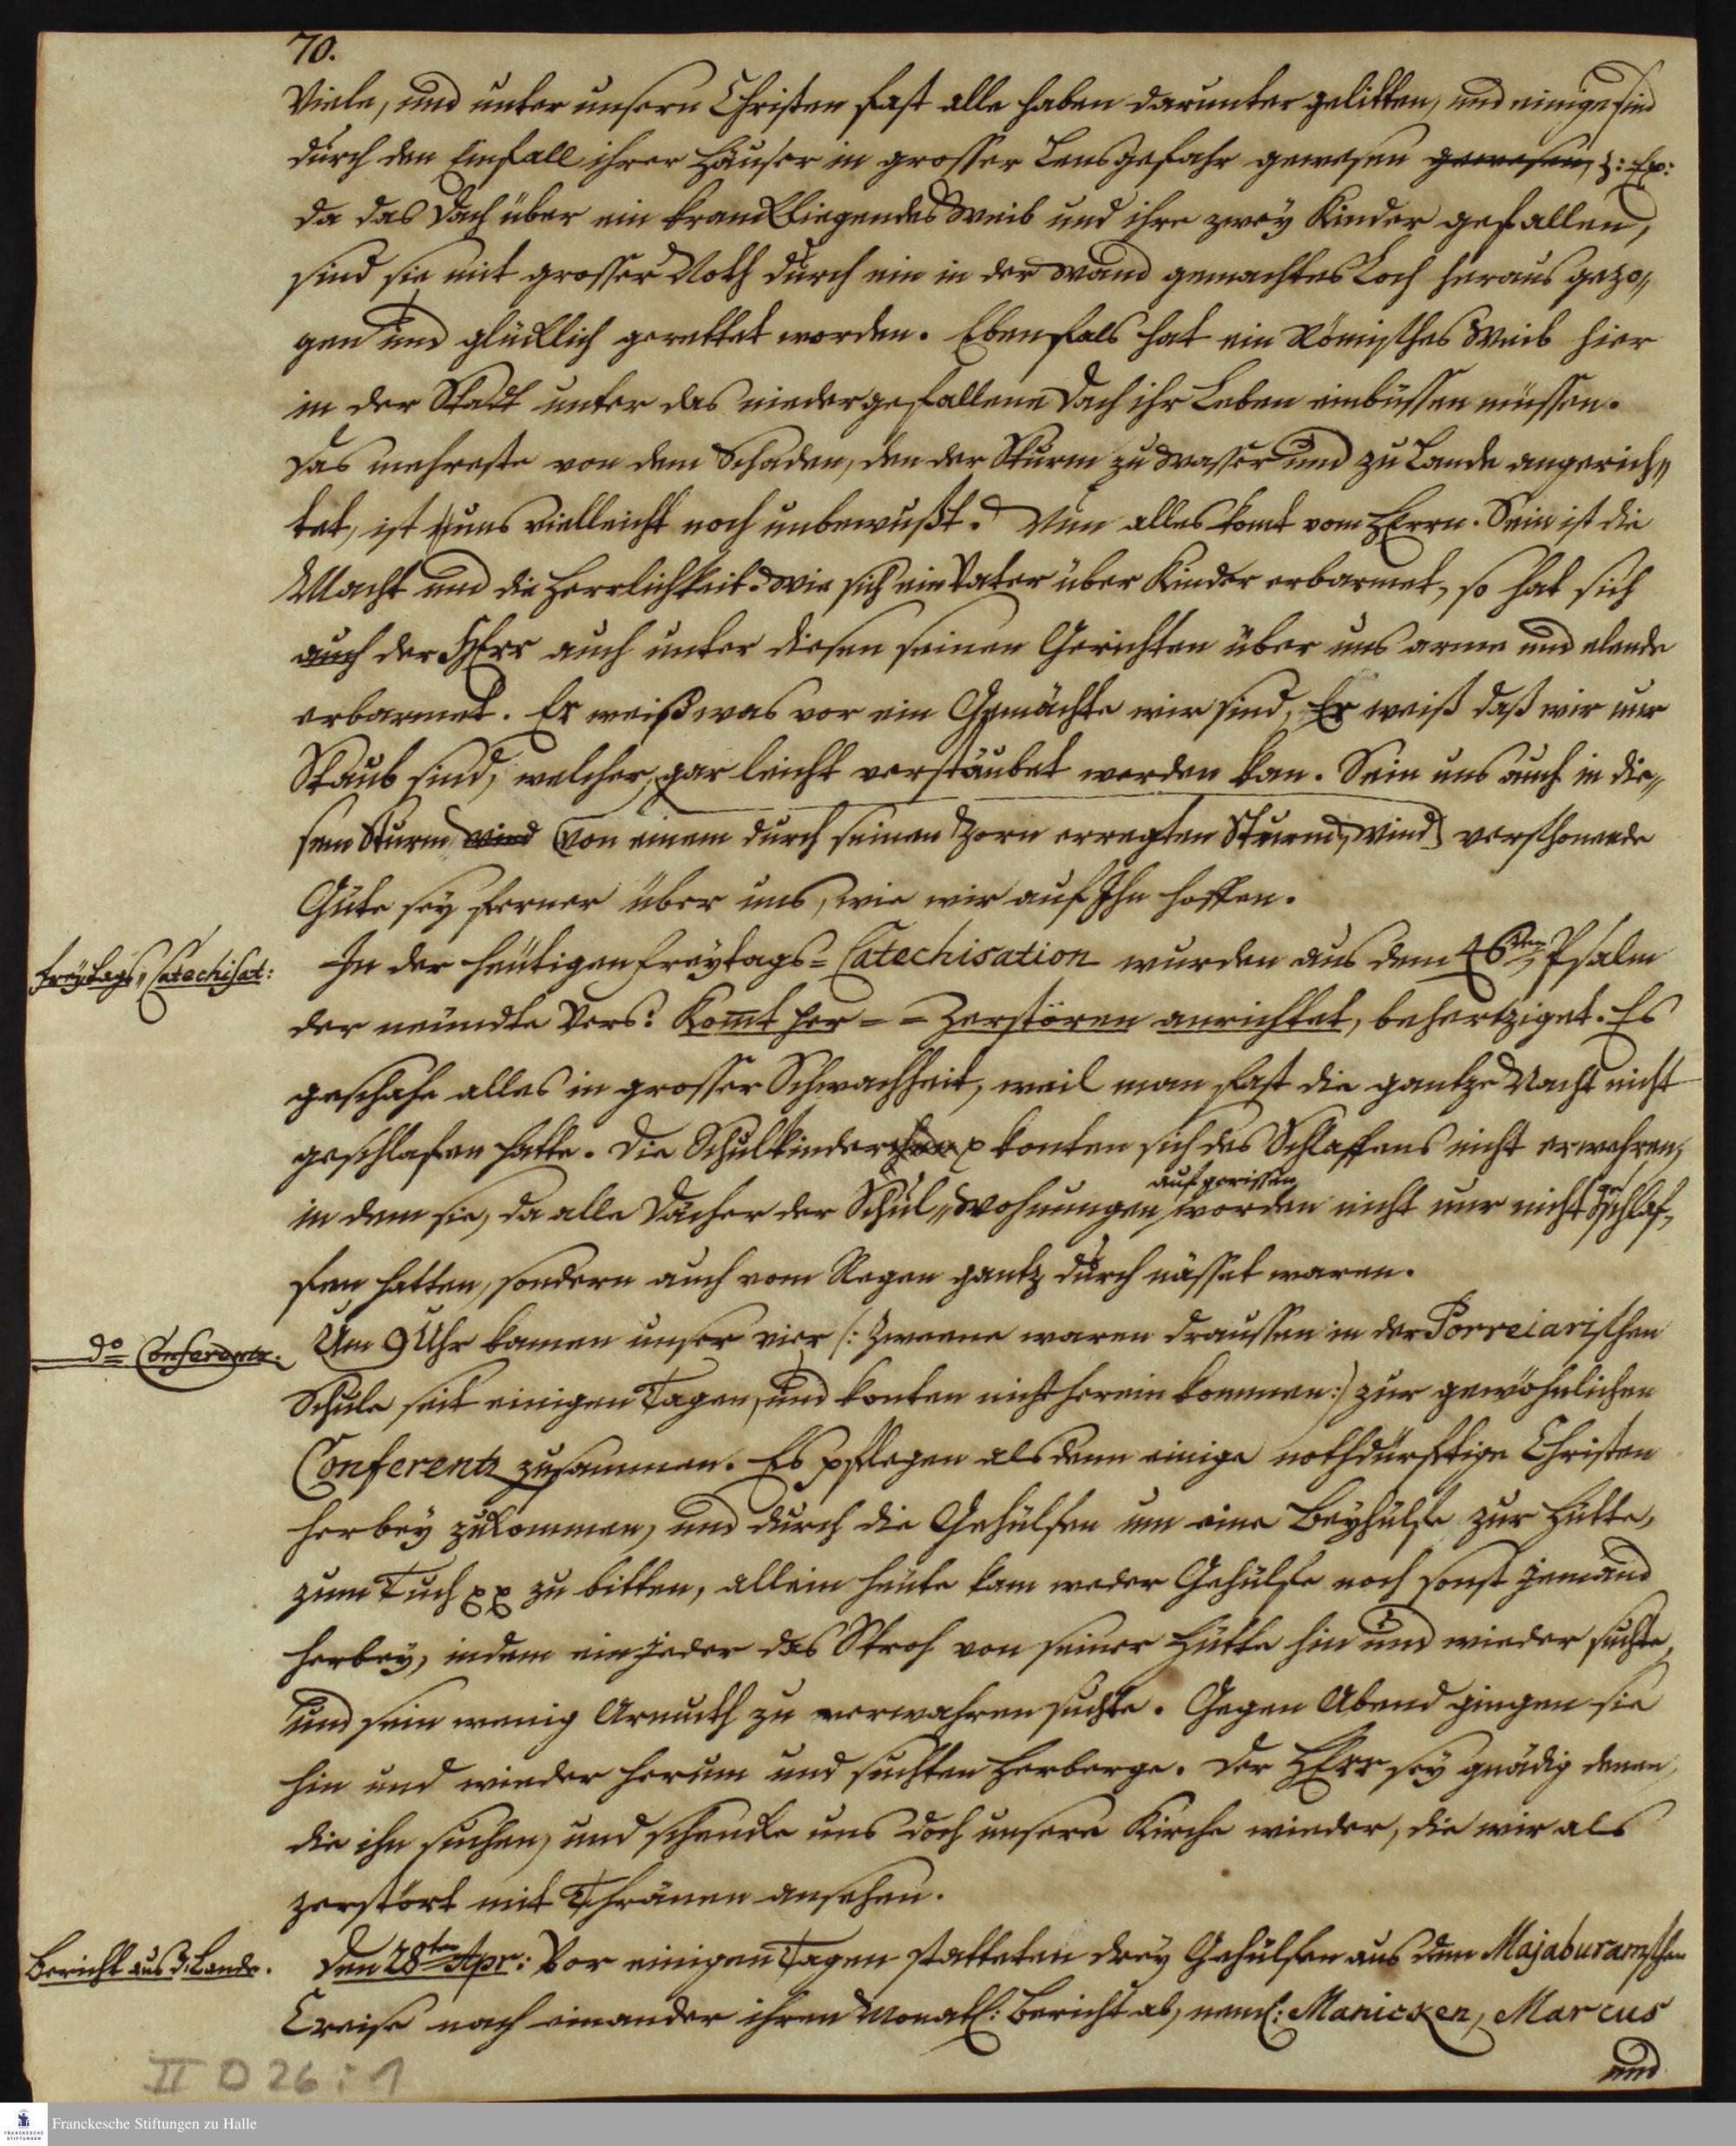 70.
Viele, und unter unsern Christen fast alle haben darunter gelitten, und einige sind
durch den Einfall ihrer Häuser in grosser Lensgefahr gewesen gewesen, z: Ex:
da das Dach über ein kranckliegendes Weib und ihre zwey Kinder gefallen,
sind sie mit grosser Noth durch ein in der Wand gemachtes Loch heraus gezo„
gen und glücklich gerettet worden. Ebenfals hat ein Römisches Weib hier
in der Stadt unter das niedergefallene Dach ihr Leben einbüssen müssen.
Das mehreste von dem Schaden, den der Sturm zu Wasser und zu Lande angerich„
tet, ist uns vielleicht noch unbewußt. Nun alles komt vom HErrn. Sein ist die
Macht und die Herrlichkeit. Wie sich ein Vater über Kinder erbarmet, so hat sich
auch der HErr auch unter diesen seinen Gerichten über uns arme und elende
erbarmet. Er weiß was vor ein Gemächte wir sind, Er weiß daß wir nur
Staub sind, welcher gar leicht verstäubet werden kan. Sein uns auch in die„
sem Sturm wind (von einem durch seinen Zorn erregten Sturm„wind) verschonende
Güte sey ferner über uns, wie wir auf Ihn hoffen.
Freytags„Catechisat:
In der heutigen Freytags-Catechisation wurden aus dem 46ten Psalm
der neundte Vers: Kom̅t her - - Zerstören anrichtet, behertziget. Es
geschahe alles in grosser Schwachheit, weil man fast die gantze Nacht nicht
geschlafen hatte. Die Schulkinder konten sich des Schlaffens nicht erwehren,
aufgerissen
in dem sie, da alle Dächer der Schul„Wohnungen worden nicht nur nicht geschlaf„
fen hatten, sondern auch vom Regen gantz durch nässet waren.
do Conferentz.
Um 9 Uhr kamen unser vier (: Zweene waren draussen in der Porreiarischen
Schule seit einigen Tagen, und konten nicht herein kommen:) zur gewöhnlichen
Conferentz zusammen. Es pflegen alsdenn einige nothdürftige Christen
herbey zukommen, und durch die Gehülfen um eine Beyhülfe zur Hütte,
zum Tuch pp zu bitten, allein heute kam weder Gehülfe noch sonst jemand
herbey, indem ein jeder das Stroh von seiner Hütte hin und wieder suchte,
und sein wenig Armuth zu verwahren suchte. Gegen Abend giengen sie
hin und wieder herum und suchten Herberge. Der HErr sey gnädig denen,
die ihn suchen, und schencke uns doch unsere Kirche wieder, die wir als
zerstört mit Thränen ansehen.
Bericht aus d. Lande.
Den 28ten Apr: Vor einigen Tagen statteten drey Gehülfen aus dem Majaburamschen
Creise nach einander ihren Monatl: Bericht ab, neml: Manicken, Marcus
und
II D 26 : 1
Franckesche Stiftungen zu Halle
FRANCKESCHE
STIFTUNGEN